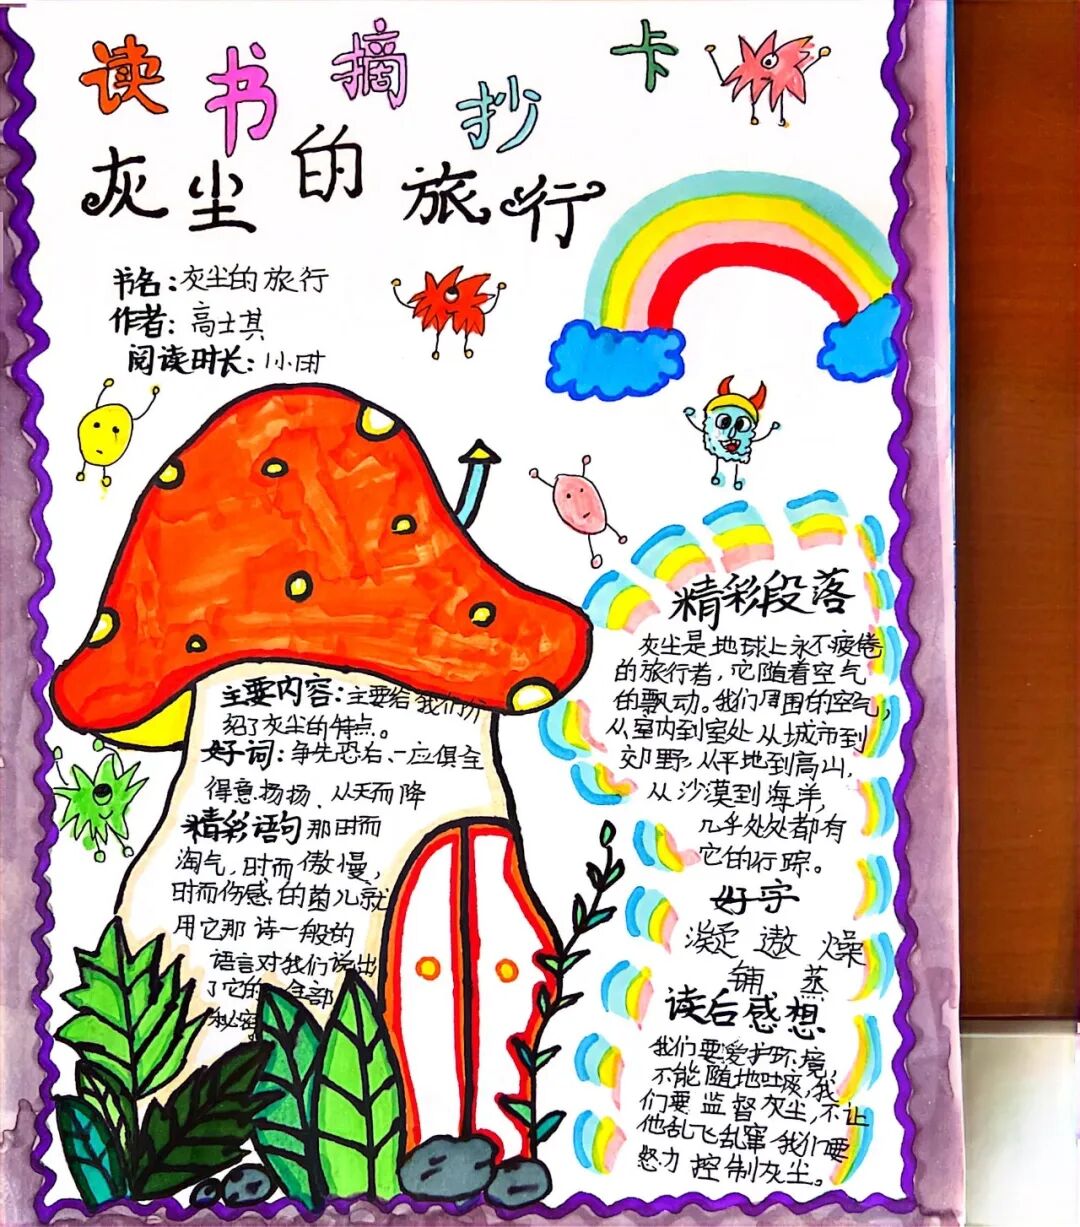 读书摘抄 卡
灰尘的旅行
书名：灰尘的旅行
作者：高士其
阅读时长：1小时
主要内容：主要给我们介
绍了灰尘的特点。
好词：争先恐后、一应俱全
得意扬扬、从天而降
精彩语句 那时而
淘气，时而傲慢，
时而伤感的菌儿就
用它那诗一般的
语言对我们说出
了它的全部
秘密
精彩段落
灰尘是地球上永不疲倦
的旅行者，它随着空气
的飘动。我们周围的空气，
从室内到室处 从城市到
郊野，从平地到高山，
从沙漠到海洋，
几乎处处都有
它的行踪。
好字
凝 遨 燥
铺 蒸
读后感想
我们要爱护环境，
不能随地吐痰，我
们要监督灰尘，不让
他乱飞乱窜 我们要
努力控制灰尘。